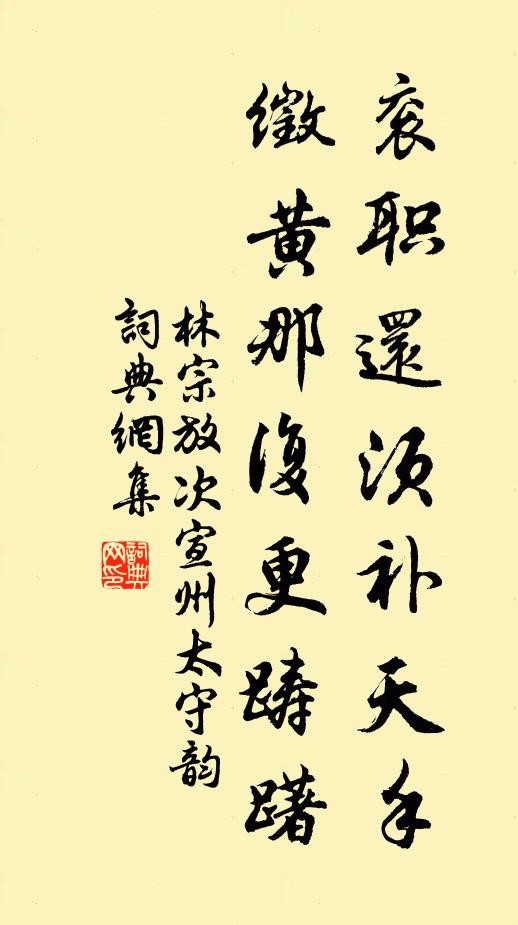 衮职還须补天手
徵黄那復更踌躇
林宗放次宣州太守韵
詞典網集
詞典網印